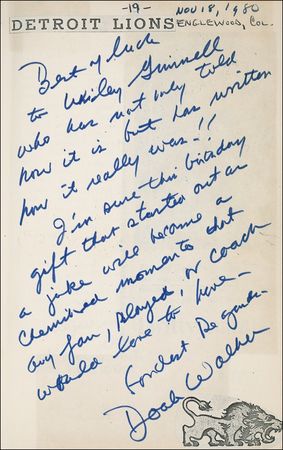 -19-
Nov 18, 1980
DETROIT LIONS
ENGLEWOOD, COL.
Best of luck
to Whiley Grinnell
who has not only told
how it is but has written
how it really was!!
I'm sure this birthday
gift that started out as
a joke will become a
cherished momento that
any fan, player, or coach
would love to have -
Fondest Regards
Doak Walker